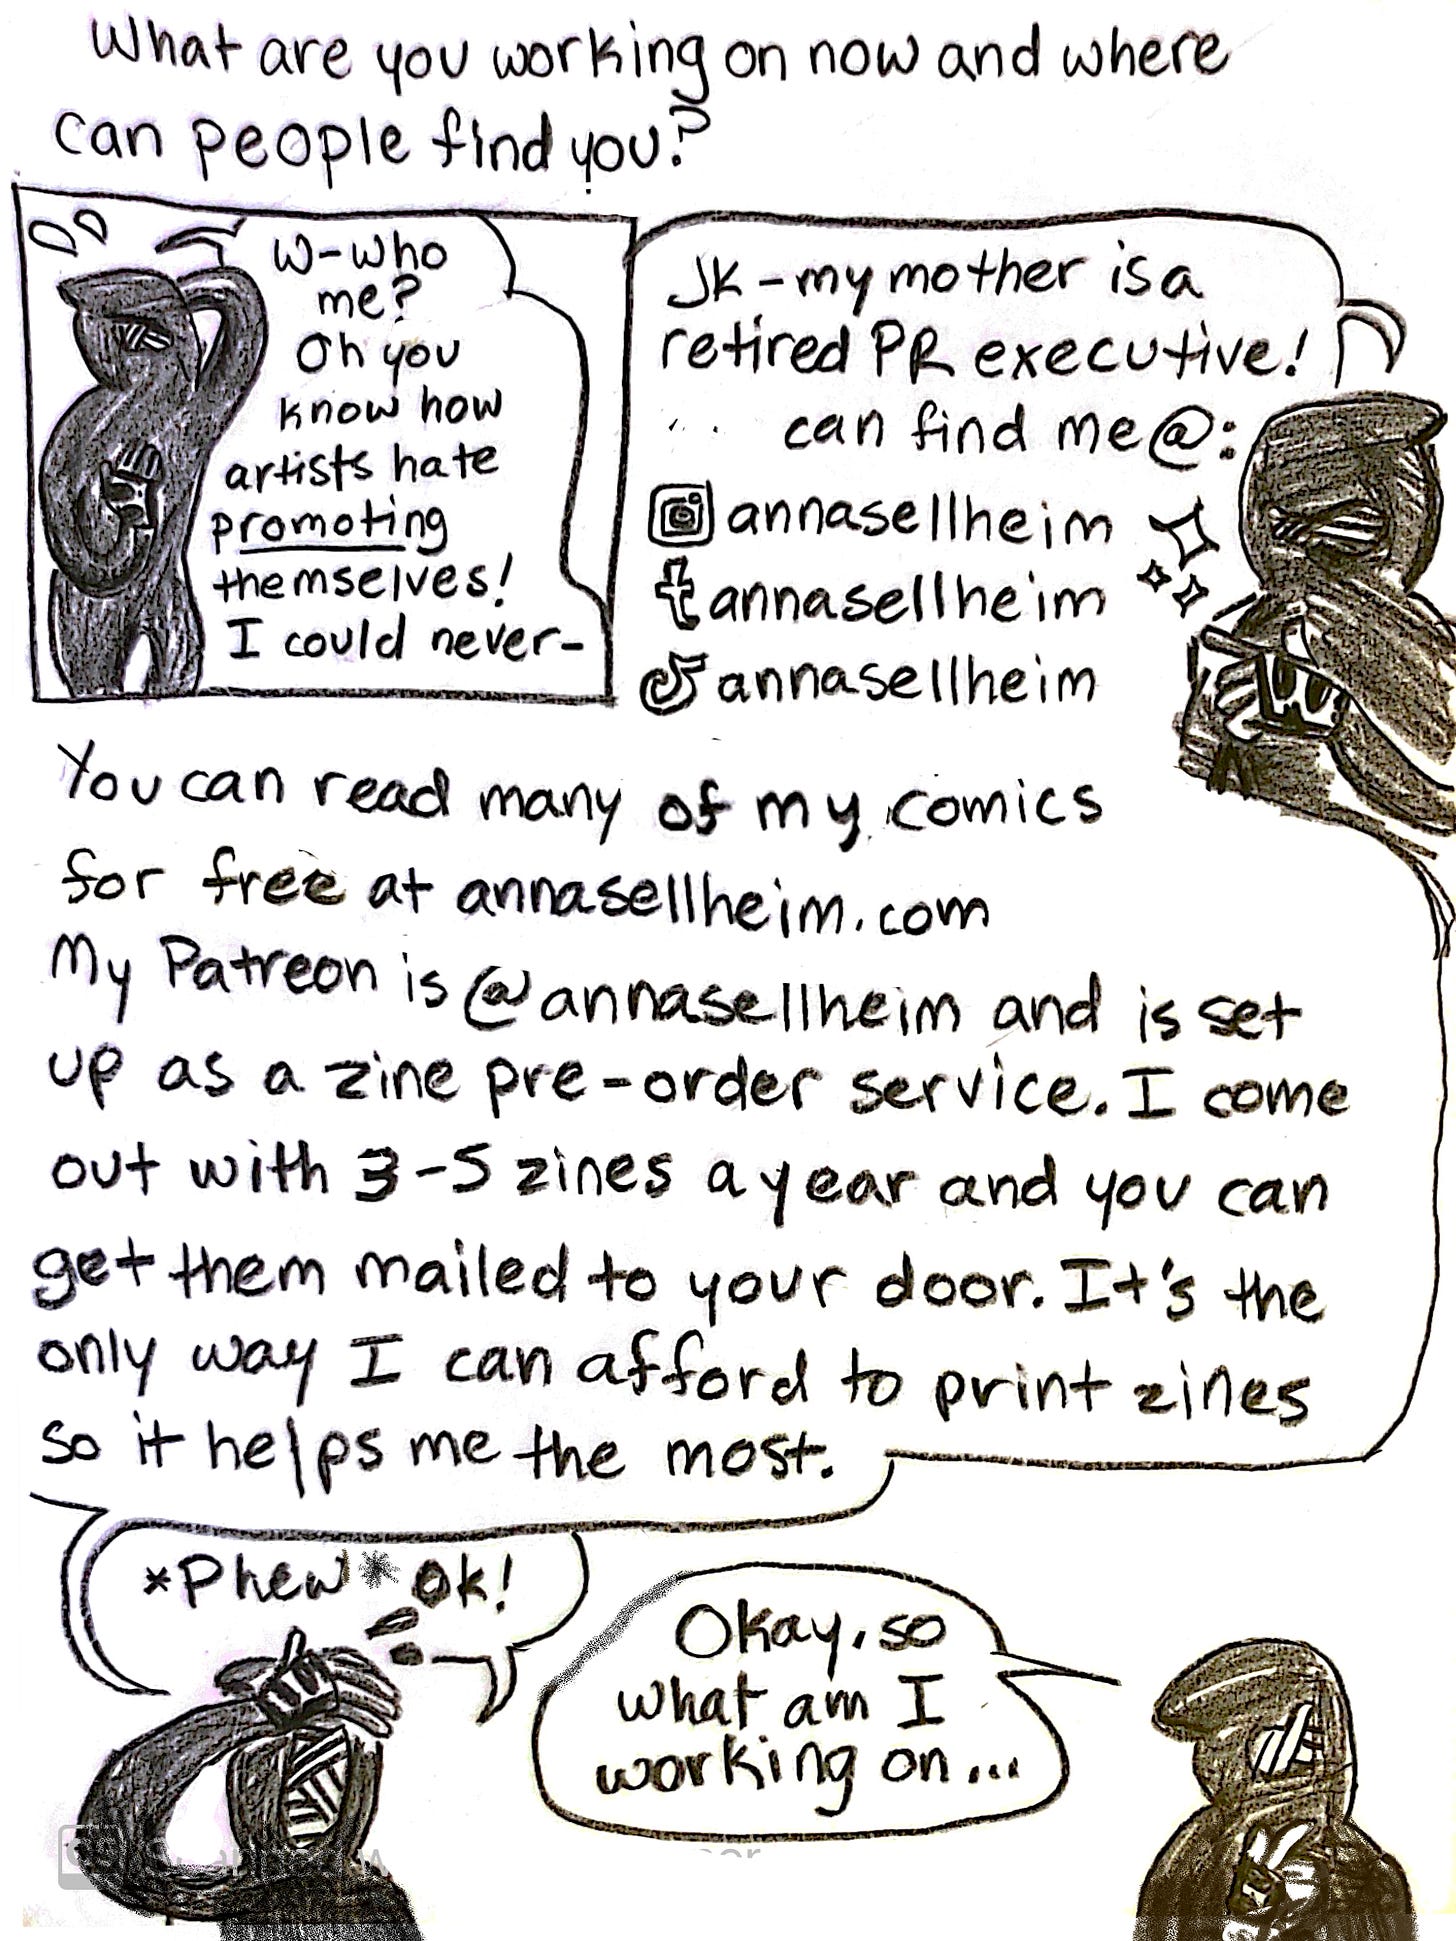 What are you working on now and where
can people find you?
W-who
me?
Oh you
know how
artists hate
promoting
themselves!
I could never-
JK-my mother is a
retired PR executive!
can find me@:
annasellheim
annasellheim
annasellheim
You can read many of my comics
for free at annasellheim.com
My Patreon is @annasellheim and is set
up as a zine pre-order service. I come
out with 3-5 zines a year and you can
get them mailed to your door. It's the
only way I can afford to print zines
so it helps me the most.
*Phew* ok!
Okay, so
what am I
working on...
CS